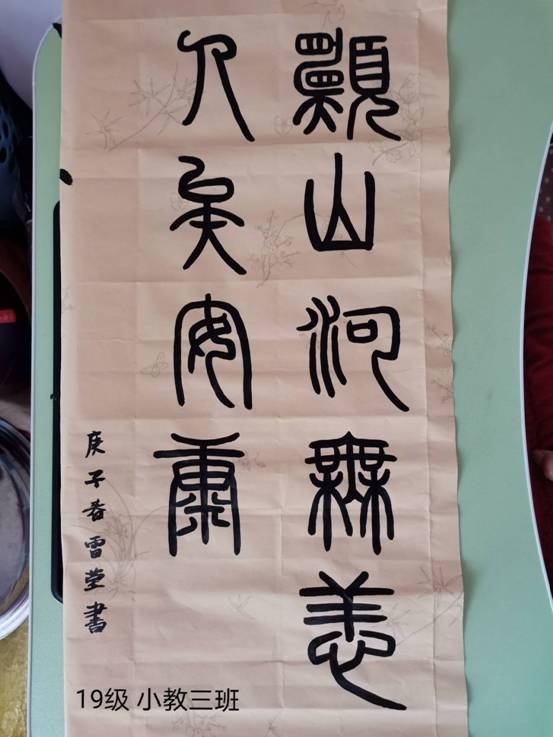 願山河無恙
人矣安康
庚子春雪莹書
19级 小教三班